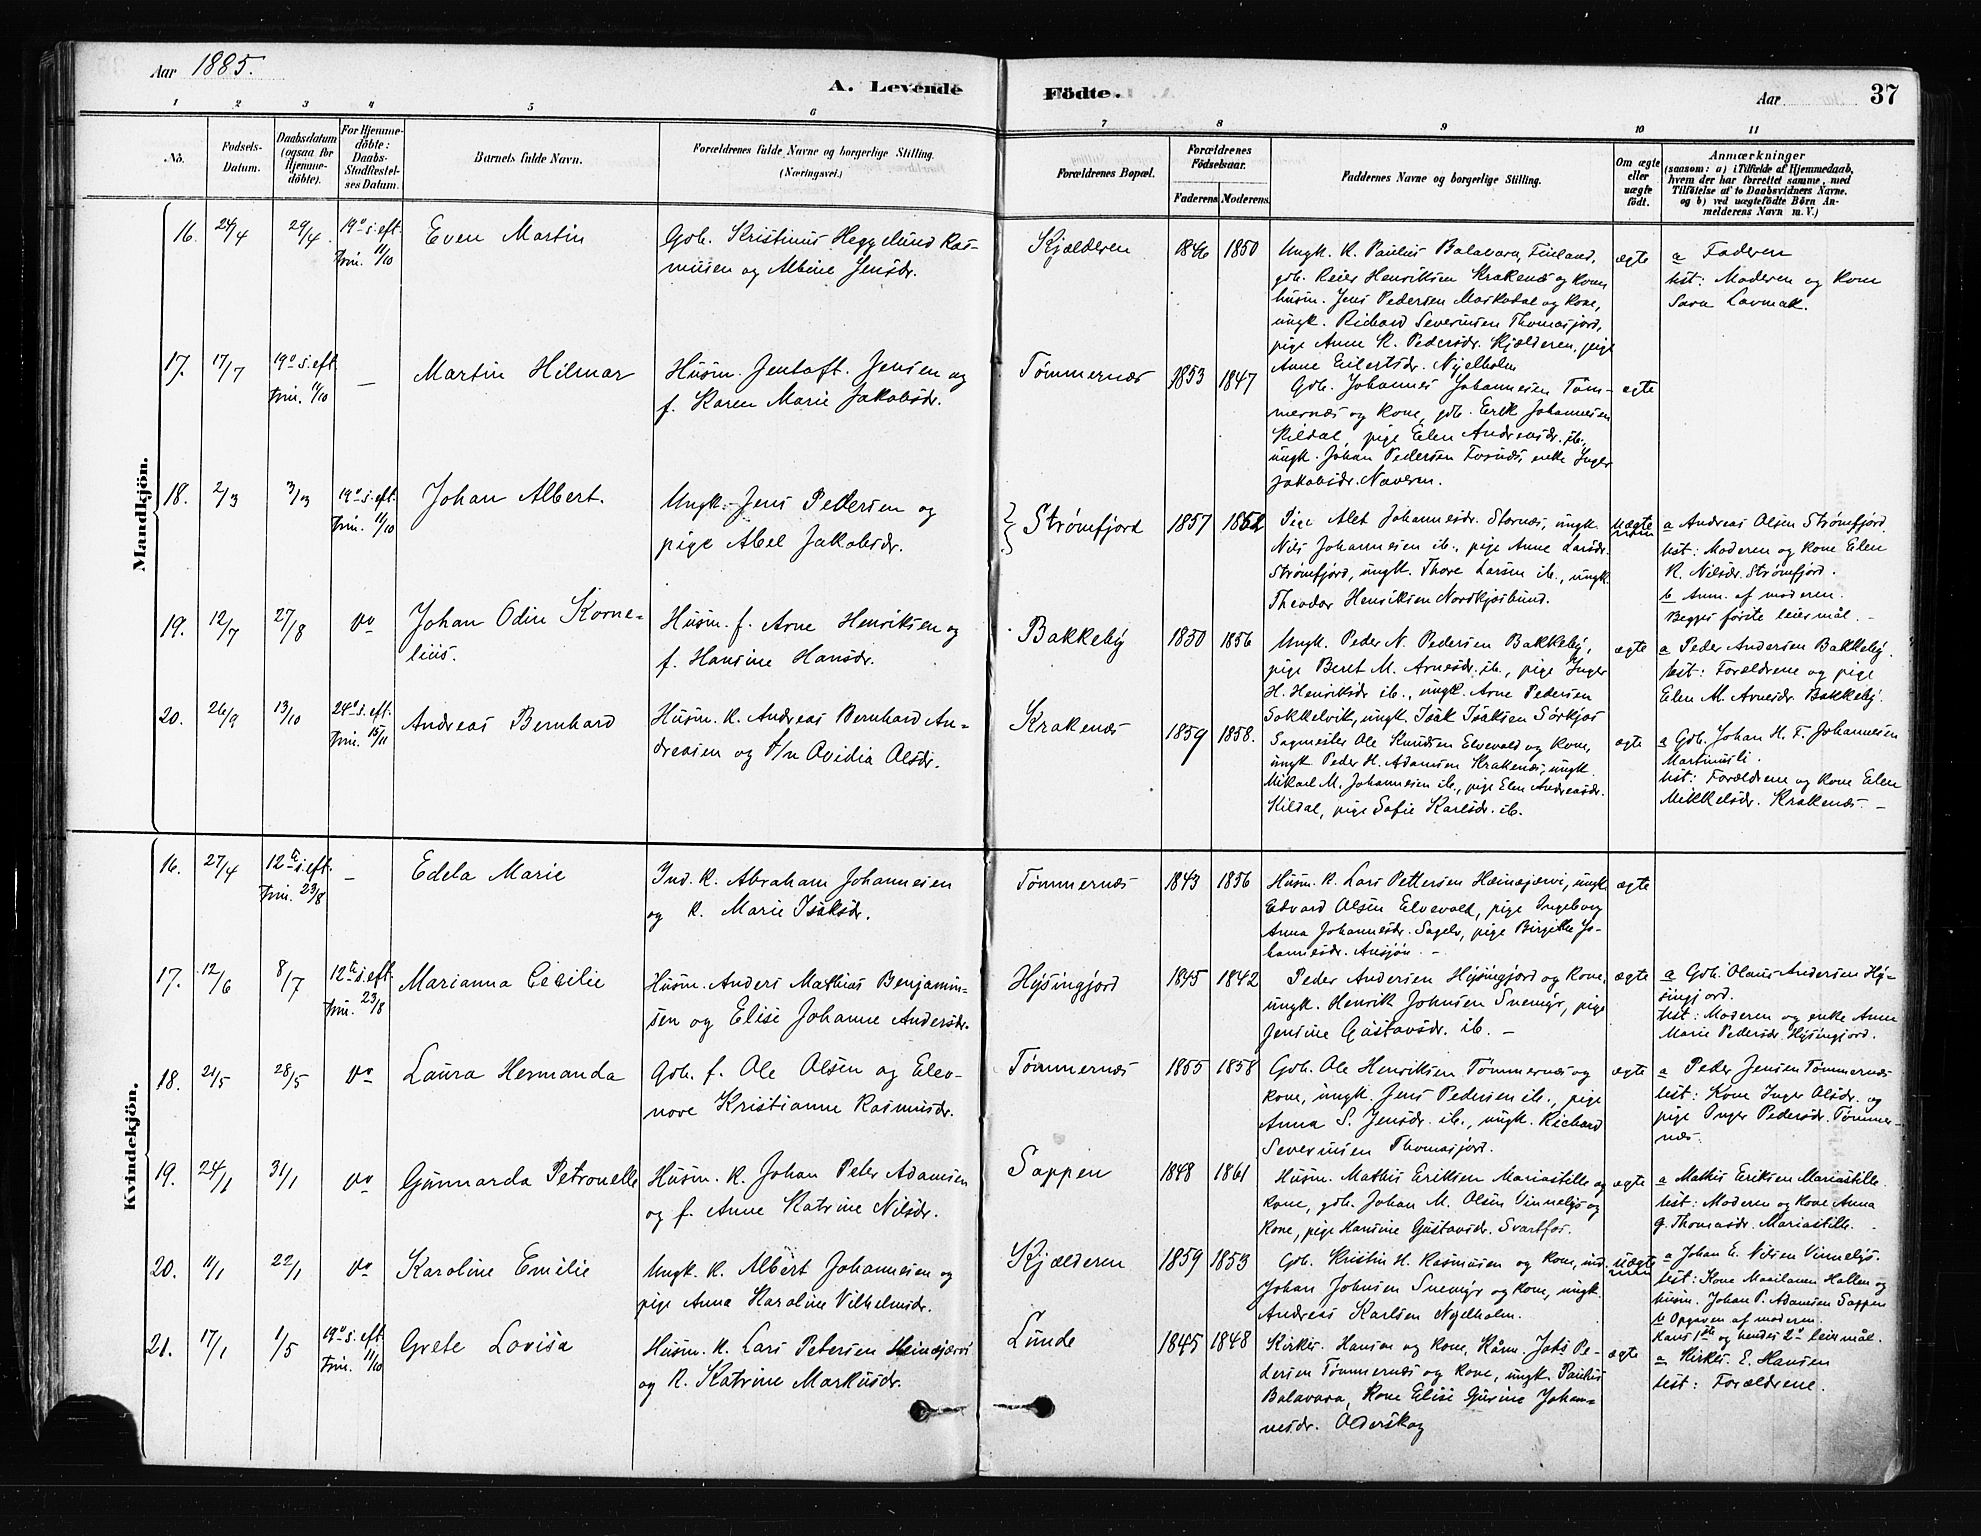 Aar 1885.
A. Levende Födte.
Aar 37
1 2 3 4 5 6 7 8 9 10 11
No.
Fødsels-
Datum.
Daabsdatum
(ogsaa for
Hjemme-
döbte).
For Hjemme-
döbte:
Daabs-
Stadfæstel-
ses Datum.
Barnets fulde Navn.
Forældrenes fulde Navne og borgerlige Stilling.
(Næringsvei.)
Forældrenes Bopæl.
Forældrenes
Födselsaar.
Faderens Moderens.
Faddernes Navne og borgerlige Stilling.
Om ægte
eller
uægte
födt.
Anmærkninger
(saasom: a) i Tilfælde af Hjemmedaab,
hvem der har forrettet samme, med
Tilföielse af to Daabsvidners Navne.
og b) ved uægtefödte Börn An-
melderens Navn m. V.)
Mandkjön.
16. 24/4 29/4 19º s. eft.
Trin. 11/10
Even Martin
Gdb. Kristinus Heggelund Ras-
musen og Albine Jensdr.
Kjælderen 1846 1850
Ungk. K. Paulus Balavara, Finland,
gdb. Reier Henriksen Krakenæs og kone,
husm. Jens Pedersen Maskodal og kone,
ungk. Richard Severinsen Thomasjord,
pige Anne K. Pedersdr. Kjælderen, pige
Anne Eilertsdr. Nyelholm
ægte
a Faderen
test: Moderen og kone
Sara Lavmak.
17. 17/7 19º s. eft.
Trin. 11/10 —
Martin Hilmar
Husm. Jentoft. Jensen og
f. Karen Marie Jakobsdr.
Tømmernæs 1853 1847
Gdb. Johannes Johannesen Tøm-
mernæs og kone, gdb. Erik Johannesen
Kildal, pige Elen Andreasdr. ib.,
ungk. Johan Pedersen Fornæs, enke Inger
Jakobsdr. Naveren.
ægte
18. 2/3 3/3 19º s. eft.
Trin. 11/10
Johan Albert.
Ungk. Jens Pedersen og
pige Abel Jakobsdr.
Strømfjord 1857 1852
Pige Alet Johannesdr. Stornæs, ungk.
Nils Johannesen ib., pige Anne Larsdr.
Strømfjord, ungk. Thore Larsen ib., ungk.
Theodor Henriksen Nordkjosbund.
uægte
a Andreas Olsen Strømfjord.
test: Moderen og kone Elen
K. Nilsdr. Strømfjord.
b Anm. af moderen.
Begges første leiermål. —
19. 12/7 27/8 do
Johan Odin Korne-
lius.
Husm. f. Arne Henriksen og
f. Hansine Hansdr.
Bakkeby 1850 1856
Ungk. Peder N. Pedersen Bakkeby,
pige Beret M. Arnesdr. ib., pige Inger
H. Henriksdr ib., ungk. Arne Pedersen
Sokkelvik, ungk. Isak Isaksen Sørkjos
ægte
a Peder Andersen Bakkeby.
test: Forældrene og pige
Elen M. Arnesdr. Bakkeby.
20. 26/9 13/10 24º s. eft.
Trin. 15/11
Andreas Bernhard
Husm. K. Andreas Bernhard An-
dreasen og f/n Ovidia Olsdr.
Krakenæs 1859 1858.
Sagmester Ole Knudsen Elvevold og kone,
ungk Peder H. Adamsen Krakenæs, ungk.
Mikael M. Johannesen ib., pige Elen Andreasdr.
Kildal, pige Sofie Karlsdr. ib.
ægte
a Gdb. Johan H. F. Johannesen
Martinusli.
test: Forældrene og kone Elen
Mikkelsdr. Krakenæs —
Kvindekjön.
16. 27/4 12te s. eft.
Trin. 23/8 —
Edela Marie
Ind. K. Abraham Johannesen
og K. Marie Isaksdr.
Tømmernæs 1843 1856
Husm. K. Lars Pettersen Heinajærvi, ungk.
Edvard Olsen Elvevold, pige Ingeborg
Anna Johannesdr. Sagelv, pige Birgitte Jo-
hannesdr. Ansjøn. —
ægte
17. 12/6 8/7 12te s. eft.
Trin. 23/8
Marianna Cecilie
Husm. Anders Mathias Benjamin-
sen og Elise Johanne Andersdr.
Hysingjord 1845 1842
Peder Andersen Hysingjord og kone,
ungk. Henrik Johnsen Snemyr, pige
Jensine Gustavsdr. ib. —
ægte
a Gdb. Olaus Andersen Hy-
singjord.
test: Moderen og enke Anne
Marie Pedersdr. Hysingjord.
18. 21/5 28/5 do
Laura Hermanda
Gdb. f. Ole Olsen og Eleo-
nore Kristianne Rasmusdr.
Tømmernæs 1855 1858
Gdb. Ole Henriksen Tømmernæs og
kone, ungk. Jens Pedersen ib., pige
Anna S. Jensdr. ib., ungk. Richard
Severinsen Thomasjord.
ægte
a Peder Jensen Tømmernæs
test: Kone Inger Olsdr. og
pige Inger Pedersdr. Tømmer-
næs.
19. 24/1 31/1 do
Gunnarda Petronelle
Husm. K. Johan Peter Adamsen
og f. Anne Katrine Nilsdr.
Sappen 1848 1861
Husm. Mathis Eriksen Mariastille og
kone, gdb. Johan M. Olsen Vinnelys og
kone, pige Hansine Gustavsdr. Svartfos.
ægte
a Mathis Eriksen Mariastille
test: Moderen og kone Anna
G. Thomasdr. Mariastille.
20. 11/1 22/1 do
Karoline Emilie
Ungk. K. Albert Johannesen og
pige Anna Karoline Vilhelmsdr.
Kjælderen 1859 1853
Gdb. Kristin H. Rasmusen og kone, ind.
Johan Johnsen Snemyr og kone, ungk.
Andreas Karlsen Nyelholm.
uægte
a Johan E. Nilsen Vinnelys.
test: Kone Maailanen Hallen og
husm. Johan P. Adamsen Sappen
b Opgaven af moderen.
Hans 1ste og hendes 2º leiermål.
21. 17/1 1/5 19º s. eft.
Trin. 11/10
Grete Lovisa
Husm. K. Lars Petersen Heinajærvi
og K. Katrine Markusdr.
Lunde 1845 1848
Kirkes. Hansen og kone, Hårm. Jots Pe-
dersen Tømmernæs og kone, ungk. Paulus
Balavara, kone Elise Gurine Johan-
nesdr. Olderskog
ægte
a Kirkes. E. Hansen
test: Forældrene.